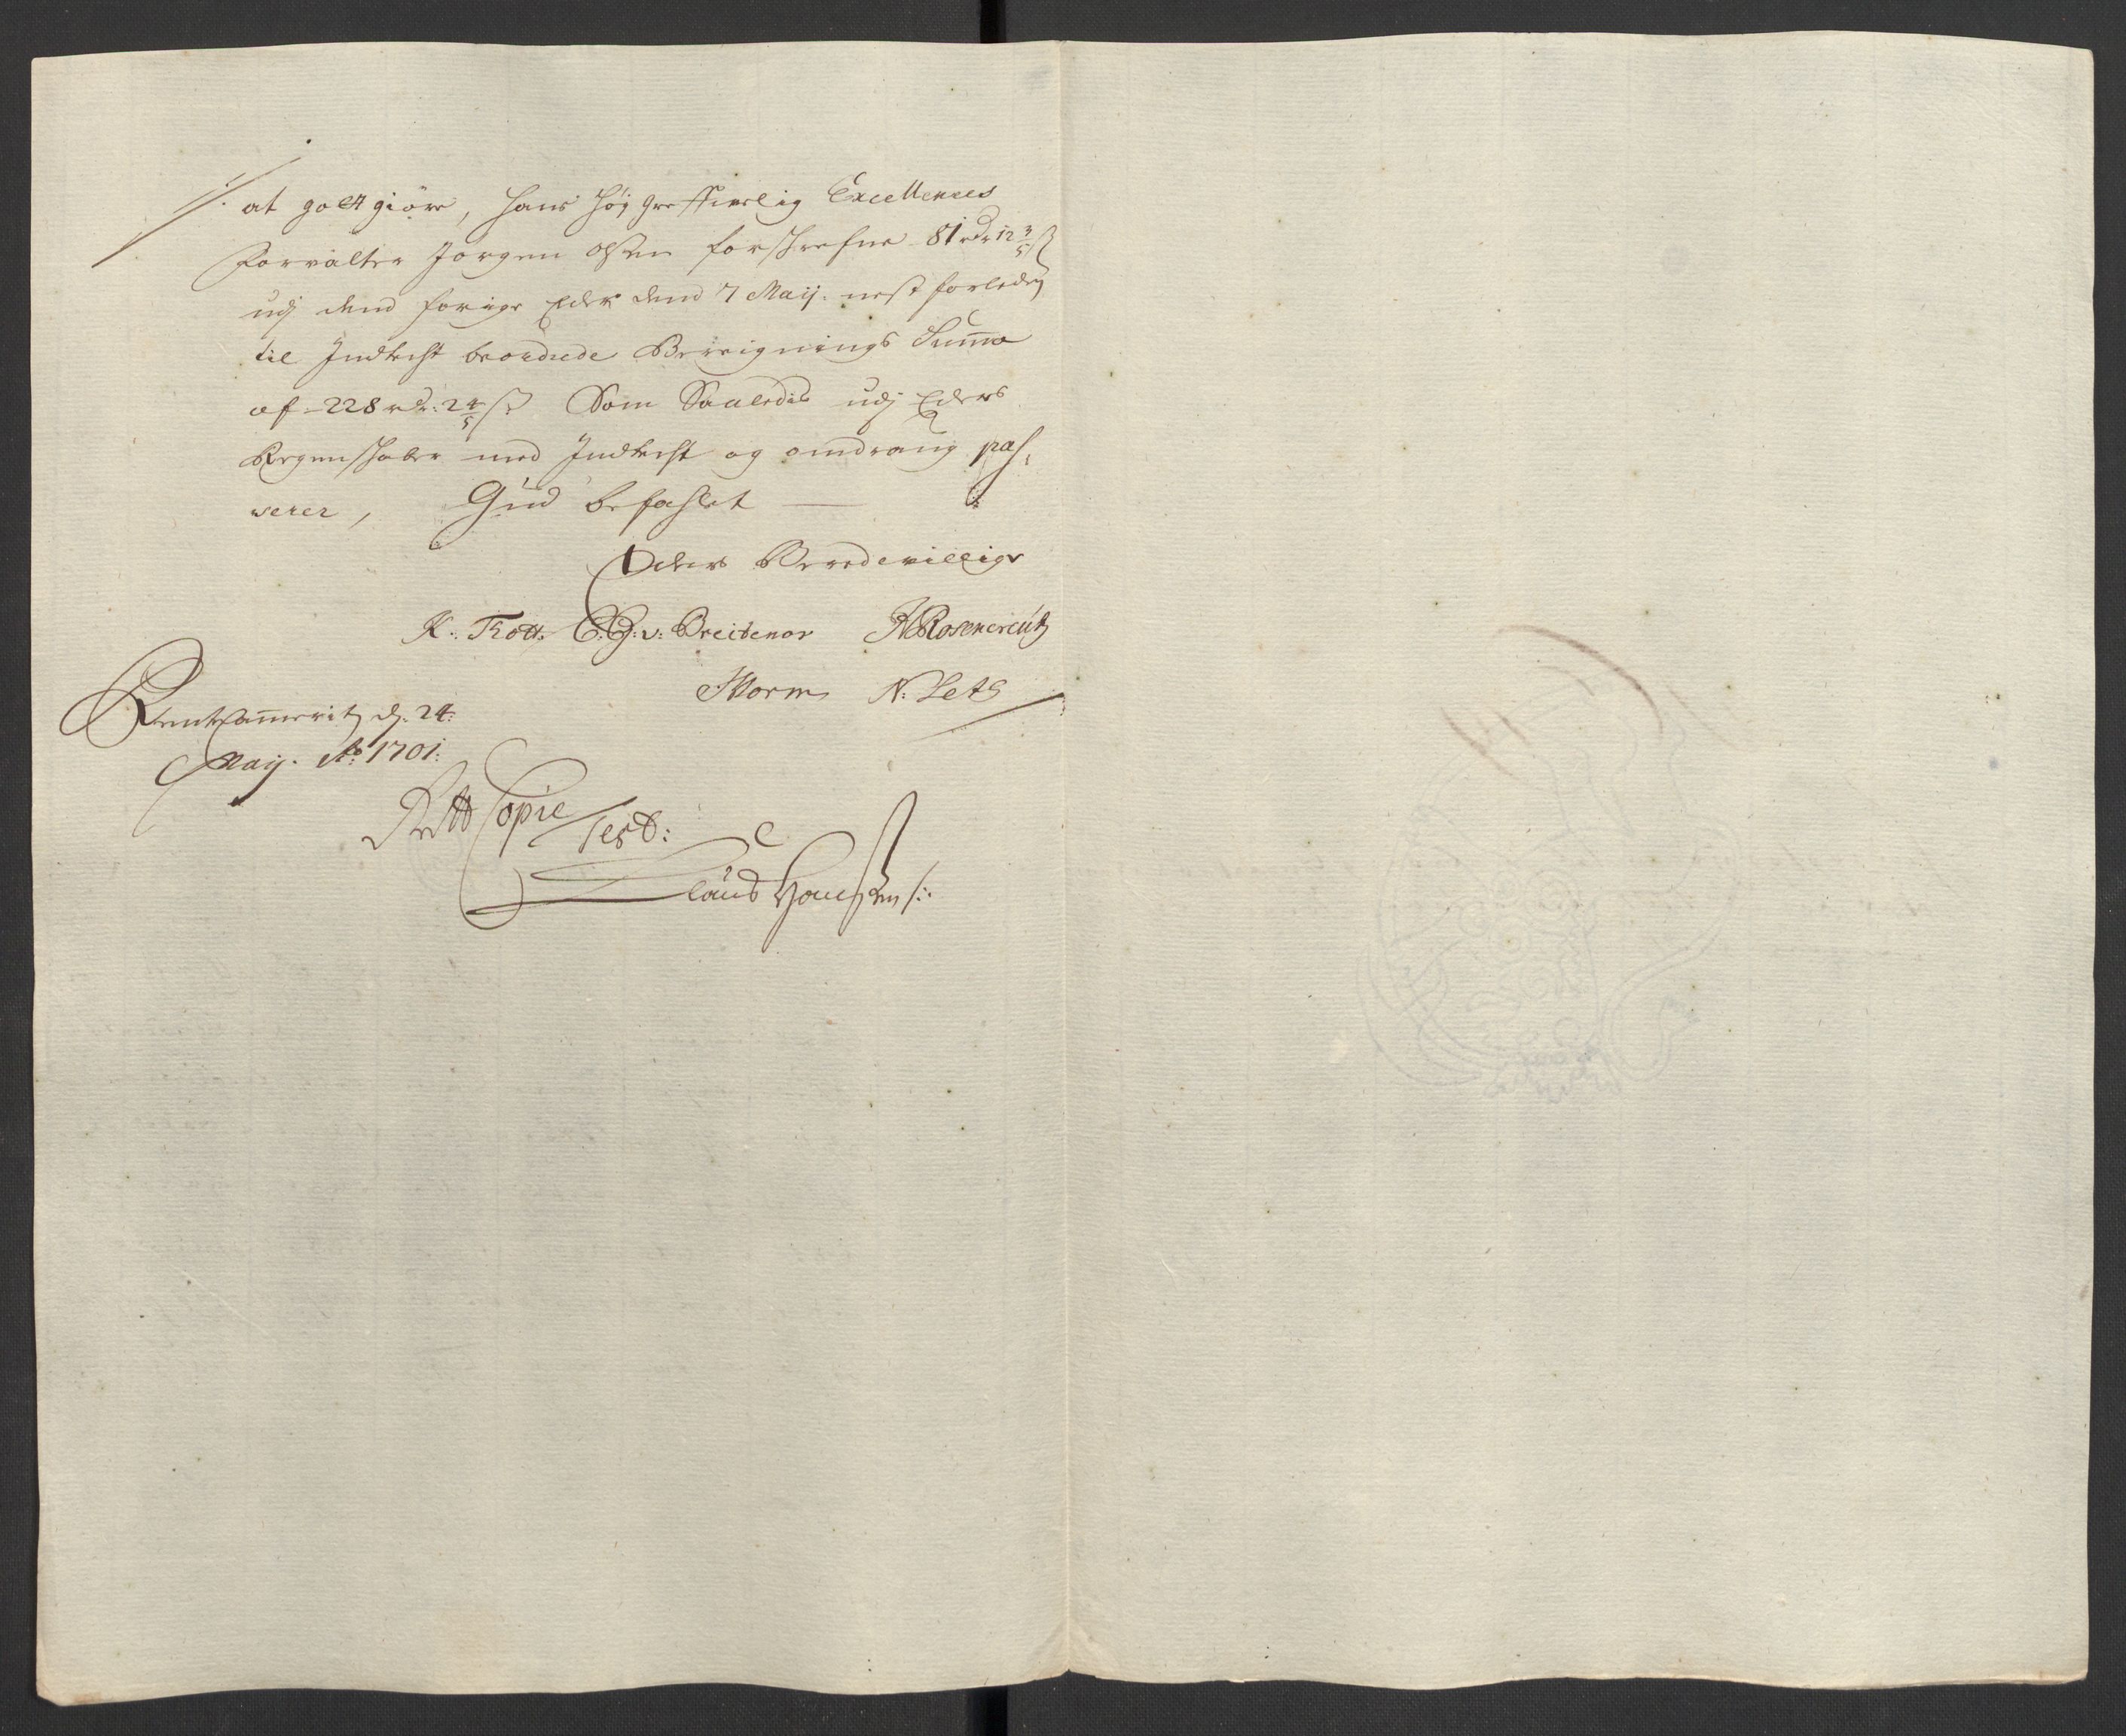 at gott giöre, hans høy Greffvelig Excellences
Forvalter Jörgen Olsen forschrefne 81 rdr 12 3/5 ß
udj dend forige Eder dend 7 Maij: nest forleden
til Indtecht beordrede Bereignings Sum̄a
af - 228 rdr: 2 4/5 ß Som Saaledis udj Eders
Regenschaber med Indtecht og omdrang pas,
serer, Gud befahlet —
Eders Beredevillige
K: Trott. C: G: v: Breitenor H Rosencreütz
Worm N: Seth
Rentecam̄erit d: 24:
Maij. Ao 1701:
Rett Copie
Test:
Claus Hanssen /: